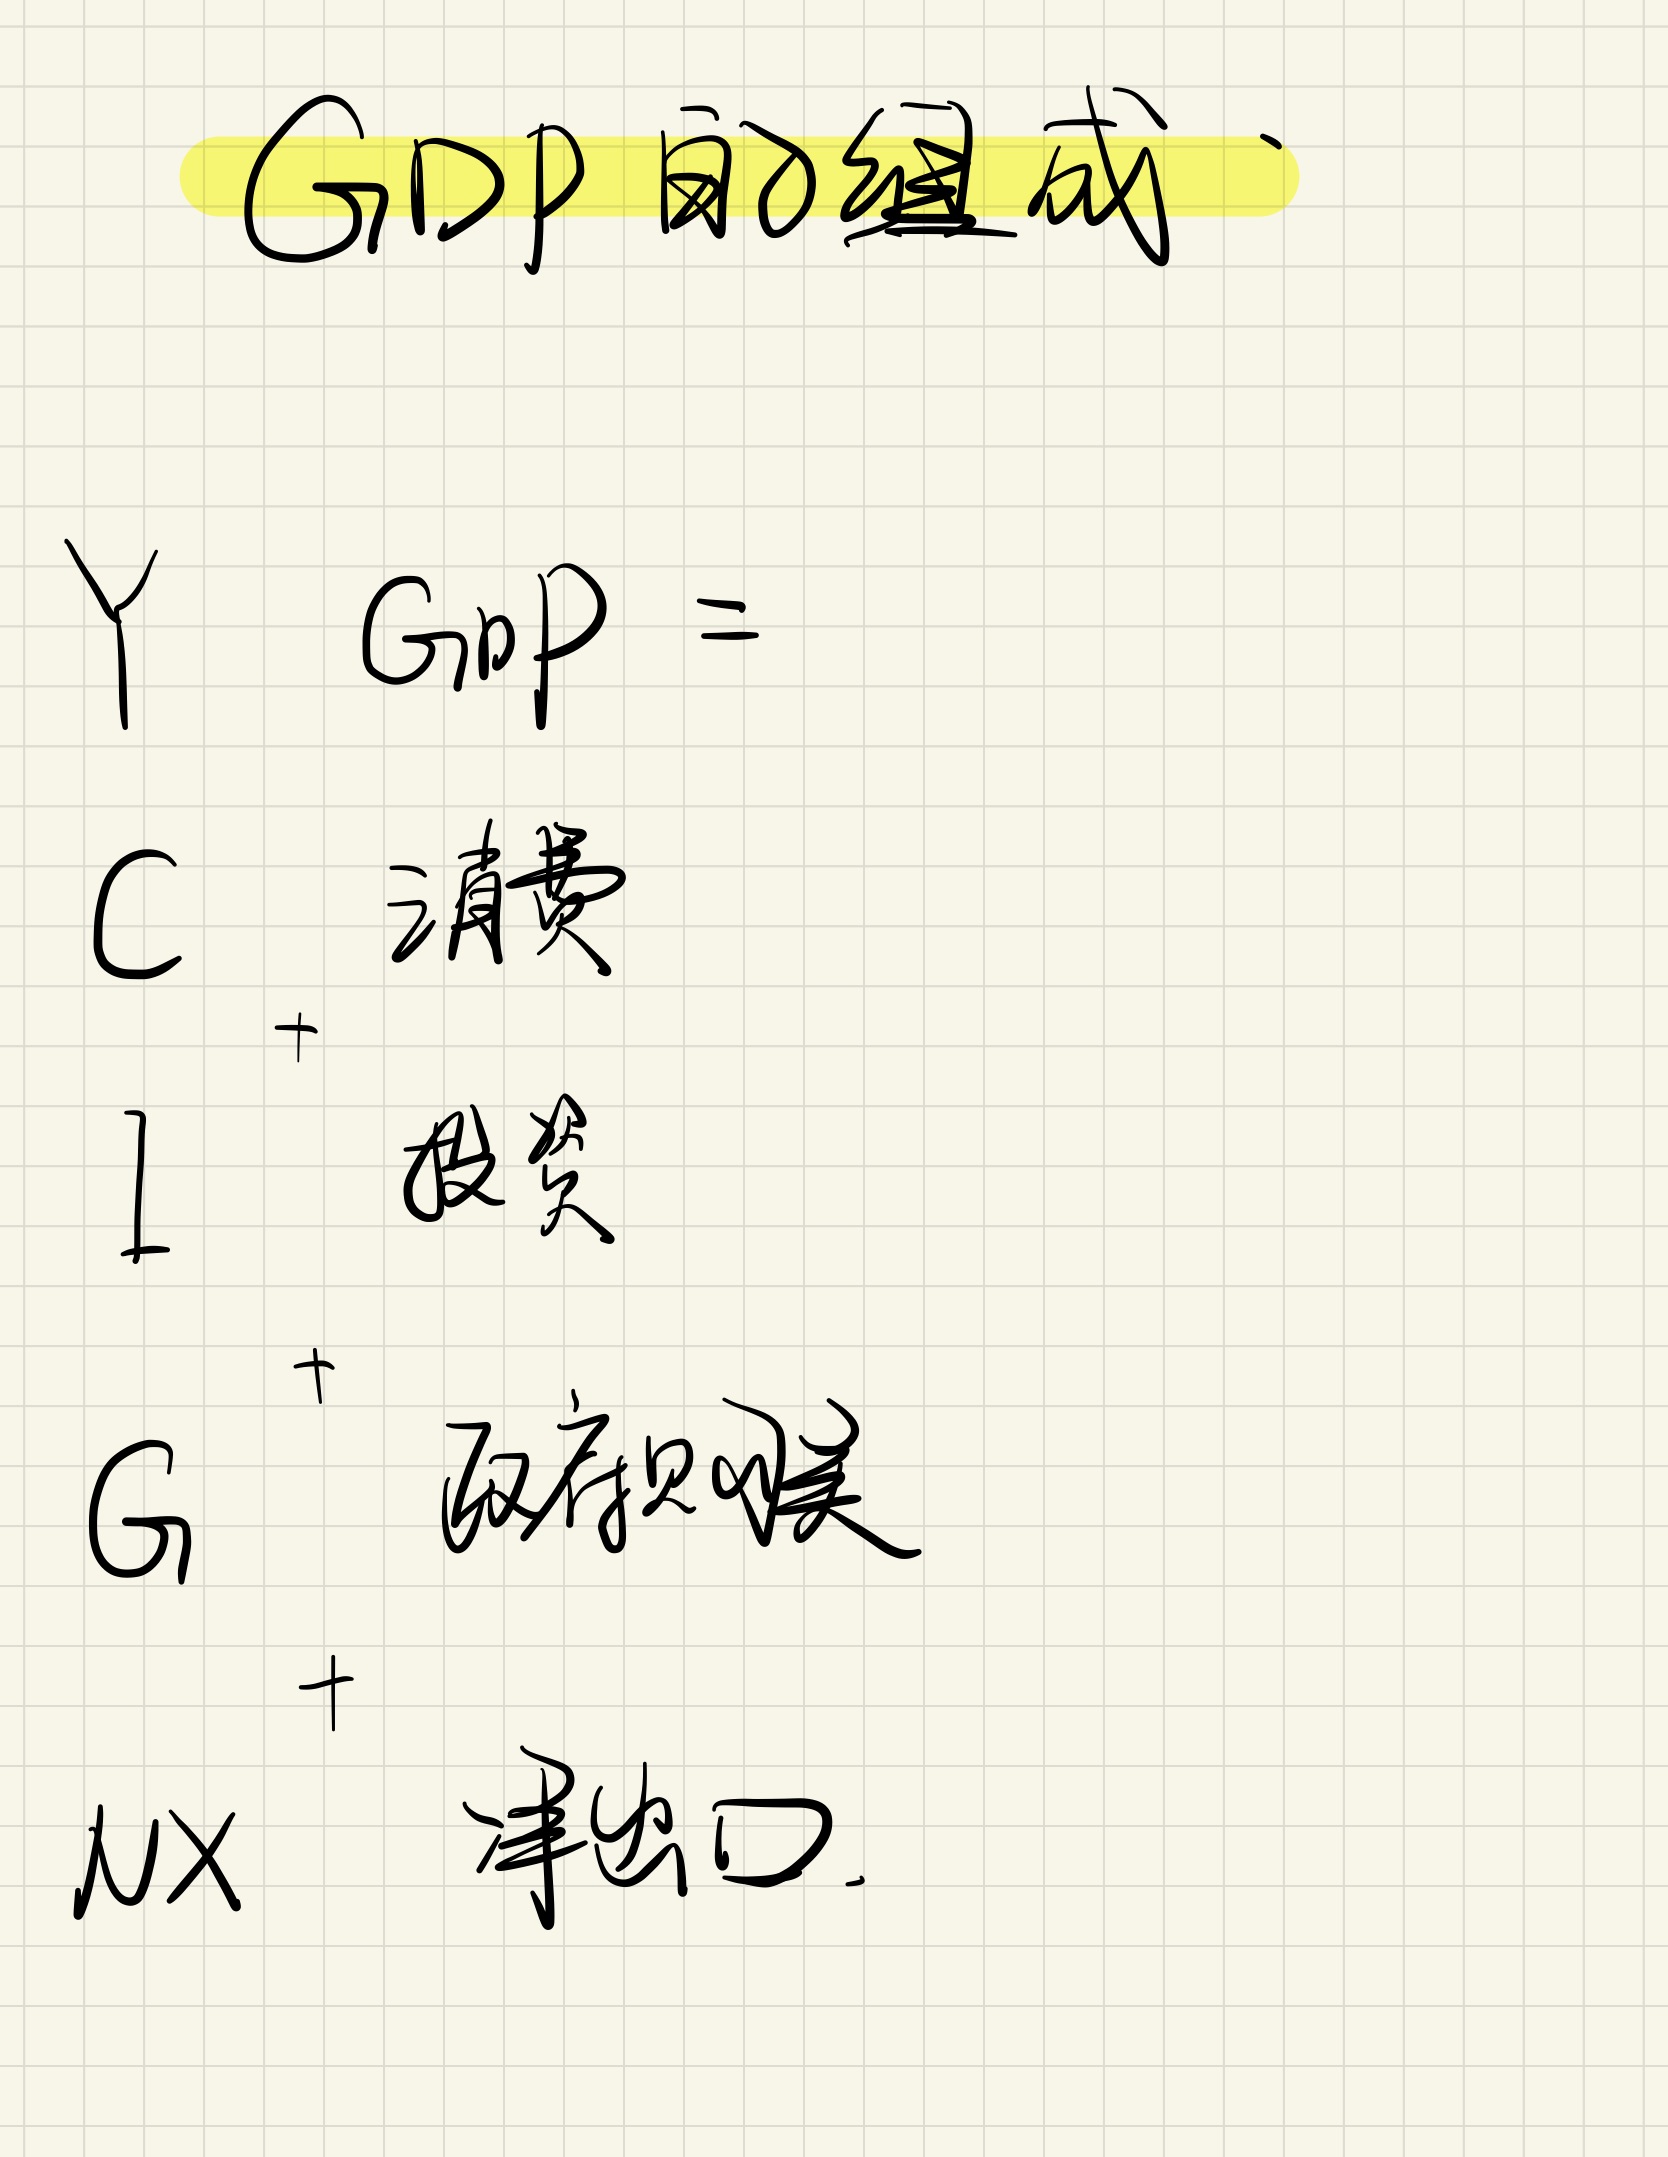 GDP的组成
Y GDP =
C 消费
+
I 投资
+
G 政府购买
+
NX 净出口.